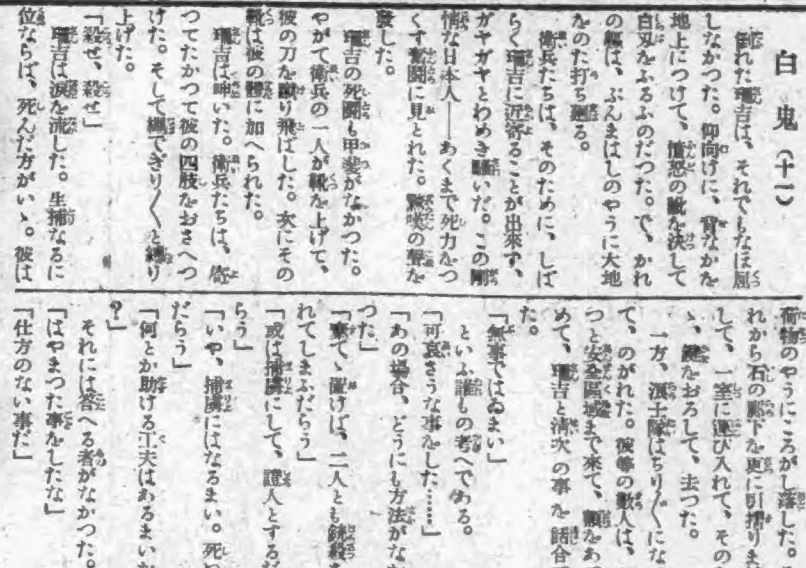 白鬼(十一)
倒れた瓏吉は、それでもなほ屈
しなかつた。仰向けに、背なかを
地上につけて、憤怒の眦を決して
白刄をふるふのだつた。で、かれ
の軀は、ぶんまはしのやうに大地
をのた打ち廻る。
衞兵たちは、そのために、しば
らく瓏吉に近寄ることが出來ず、
ガヤガヤとわめき騷いだ。この剛
情な日本人――あくまで死力をつ
くす奮鬪に見とれた。驚嘆の聲を
發した。
瓏吉の死鬪も甲斐がなかつた。
やがて衞兵の一人が靴を上げて、
彼の刀を蹴り飛ばした。次にその
靴は彼の體に加へられた。
瓏吉は呻いた。衞兵たちは、寄
つてたかつて彼の四肢をおさへつ
けた。そして繩でぎり〱と縛り
上げた。
「殺せ、殺せ」
瓏吉は淚を流した。生捕なるに
位ならば、死んだ方がいゝ。彼は
荷物のやうにころがし落した。
れから石の廊下を更に引摺りま
して、一室に運び入れて、その
ゝ、鍵をおろして、去つた。
一方、浪士隊はちり〱にな
て、のがれた。彼等の數人は、
つと安全區域まで來て、顏をあ
めて、瓏吉と淸次の事を話合
た。
「無事ではゐまい」
といふ誰もの考へである。
「可哀さうな事をした……」
「あの場合、どうにも方法がなか
つた」
「棄てゝ置けば、二人とも銃殺
れてしまふだらう」
「或は捕虜にして、證人とするだ
らう」
「いや、捕虜にはなるまい。死
だらう」
「何とか助ける工夫はあるまいか
?」
それには答へる者がなかつた。
「はやまつた事をしたな」
「仕方のない事だ」